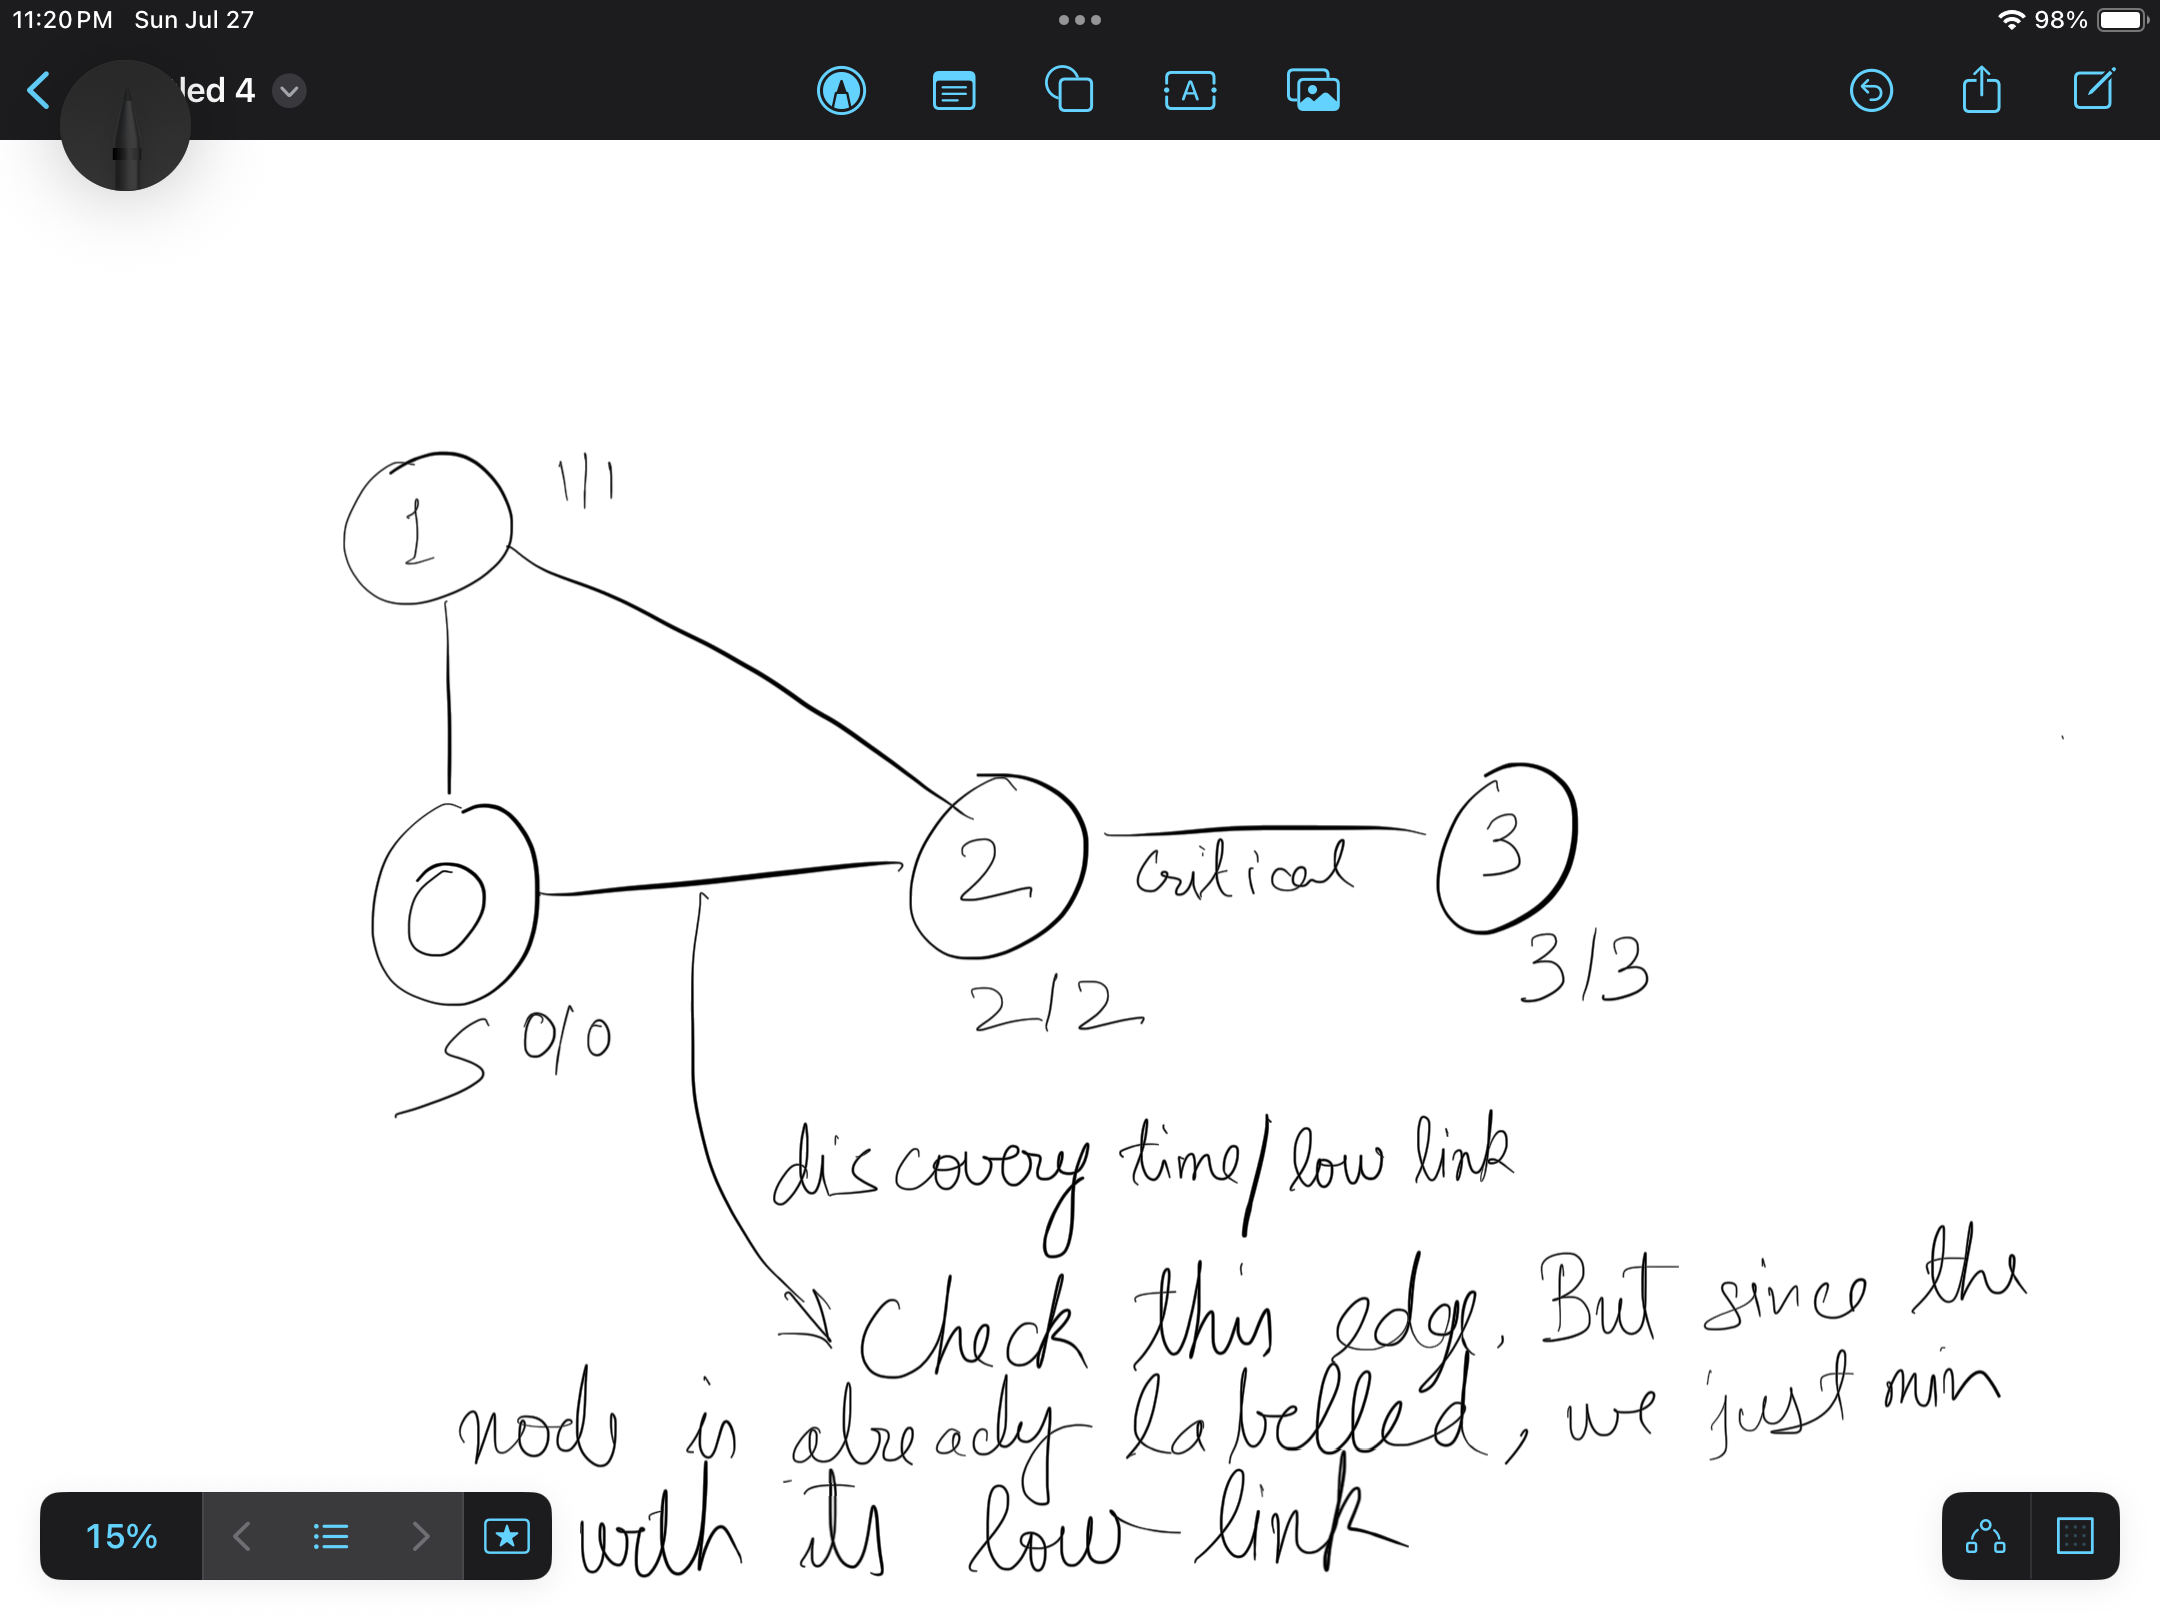 11:20 PM Sun Jul 27
98%
led 4
A
1
1/1
0
2
Critical
3
3/3
2/2
S 0/0
discovery time/low link
Check this edge. But since the
node is already labelled, we just min
with its low-link
15%